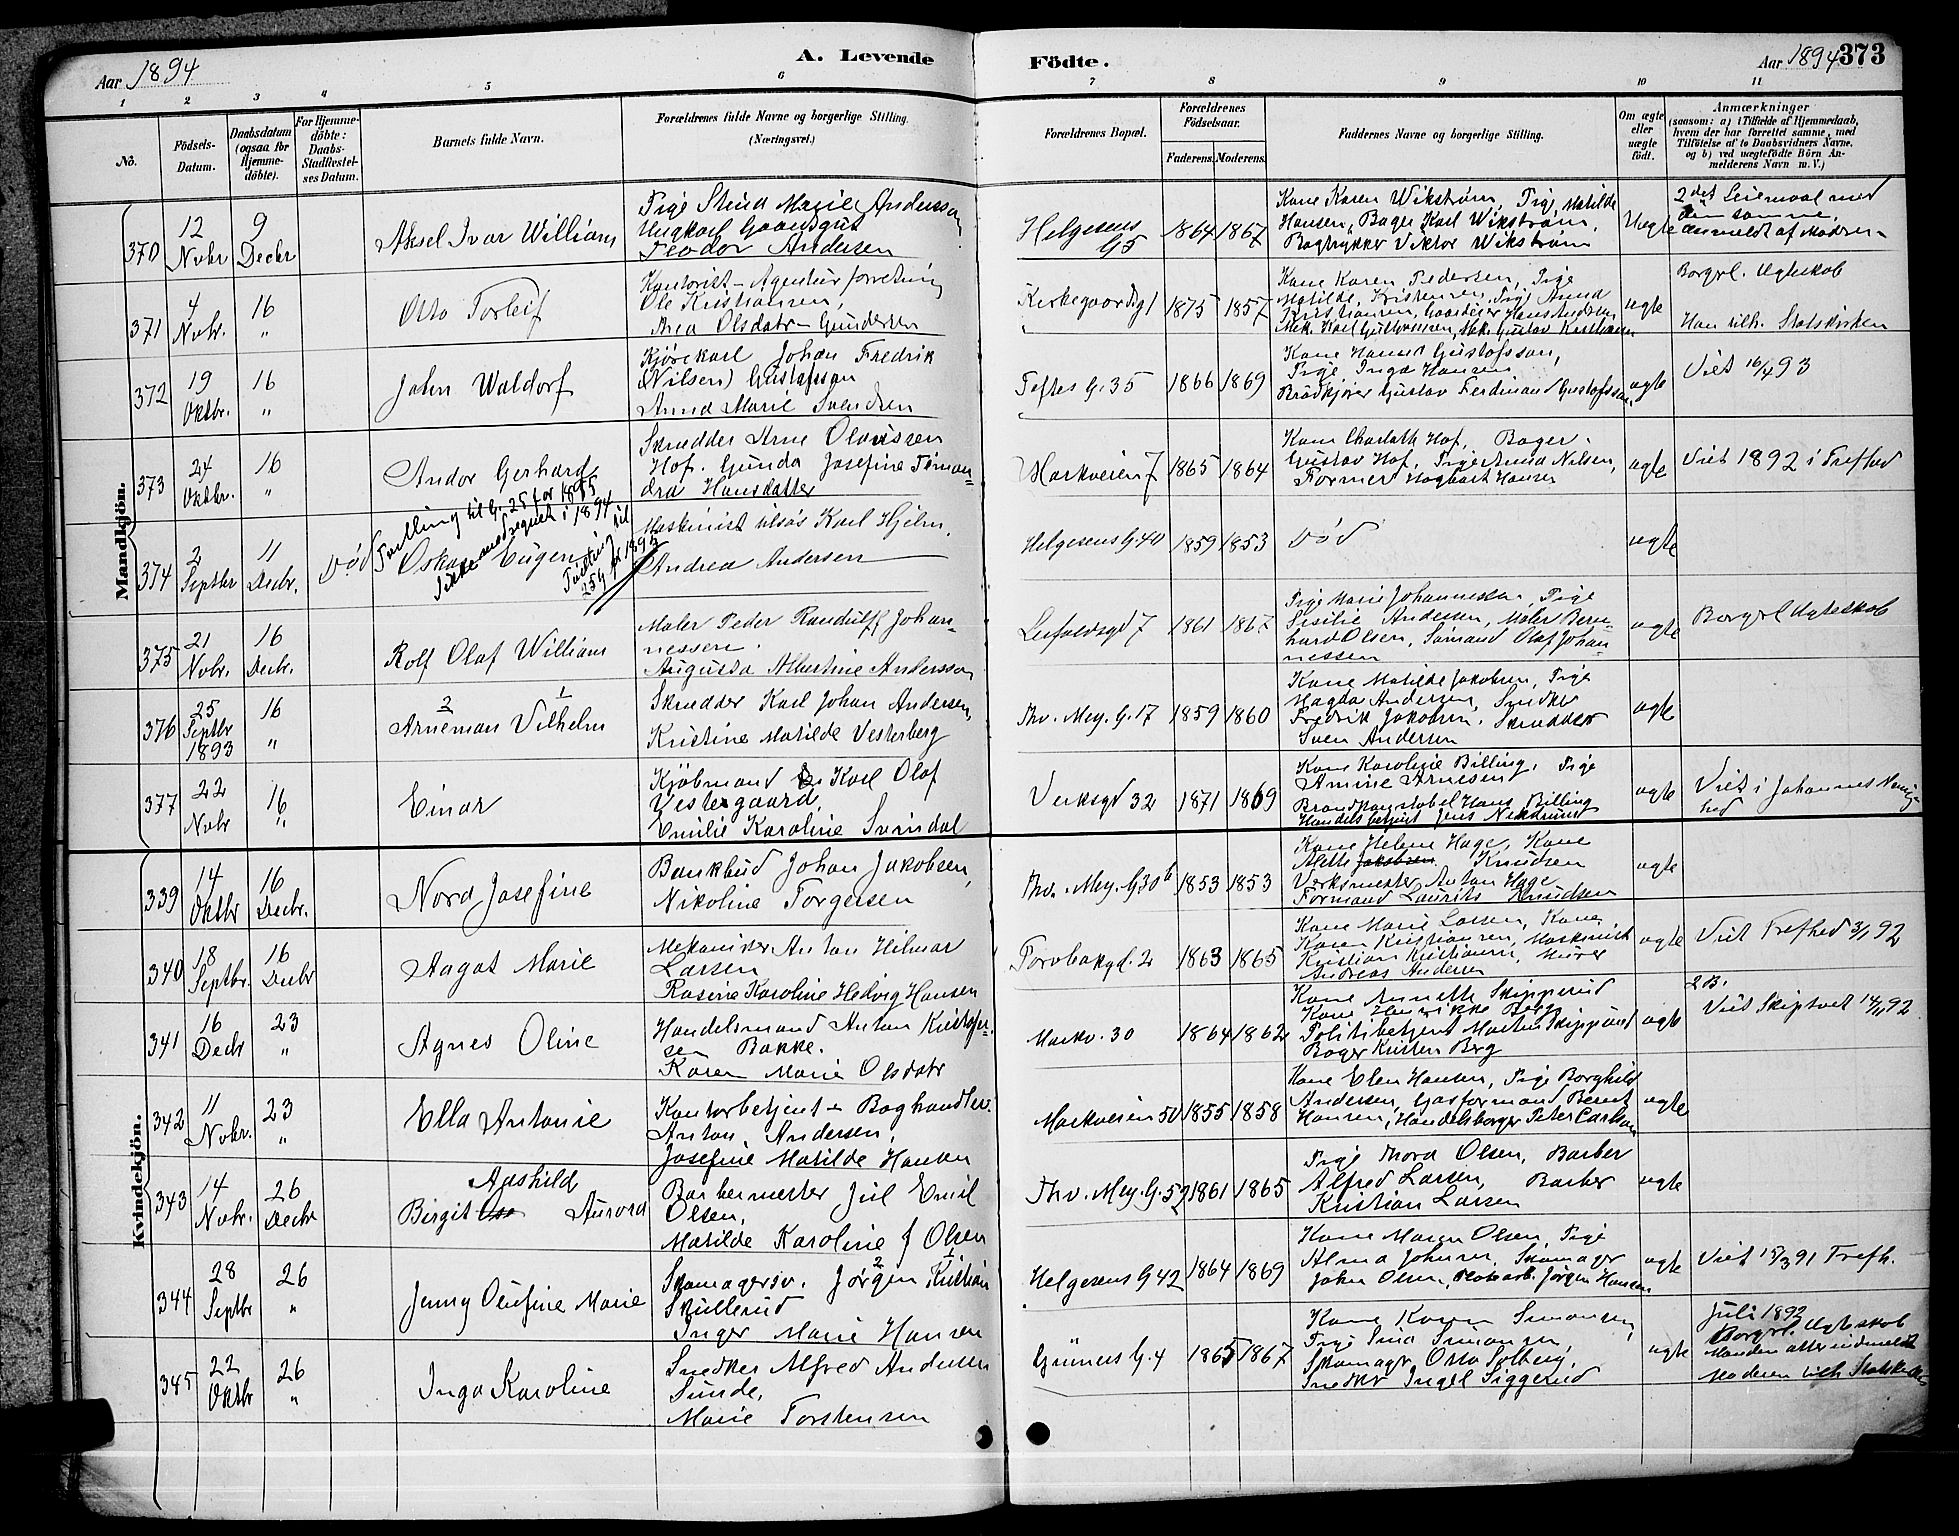 Aar 1894
A. Levende
Födte.
Aar 1894 373
1 2 3 4 5 6 7 8 9 10 11
No.
Födsels-
Datum.
Daabsdatum
(ogsaa for
Hjemme-
döbte).
For Hjemme-
döbte:
Daabs-
Stadfæstel-
ses Datum.
Barnets fulde Navn.
Forældrenes fulde Navne og borgerlige Stilling.
(Næringsvei.)
Forældrenes Bopæl.
Forældrenes
Födselsaar.
Faderens. Moderens.
Faddernes Navne og borgerlige Stilling.
Om ægte
eller
uægte
födt.
Anmærkninger
(saasom: a) i Tilfælde af Hjemmedaab,
hvem der har forrettet samme, med
Tilföielse af to Daabsvidners Navne,
og b) ved uægtefödte Börn An-
melderens Navn m. V.)
Mandkjön.
370
12
Novbr
9
Decbr
Aksel Ivar William
Pige Stina Marie Andersson
Ungkarl Gaardsgut
Teodor Andersen
Helgesens
G5
1864 1867
Kone Karen Wikstrøm, Pige Matilde
Hansen, Bager Karl Wikstrøm,
Bogtrykker Viktor Wikstrøm
Uegte
2det Leiermaal med
den samme.
Anmeldt af Moderen
371
4
Novbr.
16
"
Otto Torleif
Kontorist - Agentur forretning
Ole Kristiansen,
Ana Olsdatr Gundersen
Kirkegaardsg 1
1875 1857
Kone Karen Pedersen, Pige
Matilde Kristensen, Pige Anna
Kristiansen, Gaardeier Hans Knudsen
Mek. Karl Gulbransen, Mek. Gustav Kristiansen
egte
Borgrl. Egteskab
Han tilh. Statskirken
372
19
Oktbr.
16
"
John Waldorf
Kjørekarl Johan Fredrik
(Nilsen) Gustafsson
Anna Marie Svendsen
Toftes G. 35
1866 1869
Kone Hanna Gustafsson,
Pige Inga Hansen
Brødkjører Gustav Ferdinand Gustafsson
egte
Viet 16/4 93
373
24
Oktbr.
16
"
Andor Gerhard
Skrædder Arne Olavissen
Hof. Gunda Josefine Timan-
dra Hansdatter
Markveien 7
1865 1864
Kone Charlotte Hof, Bager
Gustav Hof, Pige Anna Nilsen,
Former Hagbart Hansen
egte
Viet 1892 i Trefhed
374
2
Septbr
11
Decbr.
Død
Tvilling til G. 25 for 1895
Ikke medregnet i 1894
Oskar Eugen
Tvilling til
25 g for 1895
Maskinist tilsøs Karl Hjelm
Andrea Andersen
Helgesens G. 40
1859 1853
Død
egte
375
21
Novbr.
16
Decbr.
Rolf Olaf William
Maler Peder Randulff Johan-
nessen.
Augusta Albertine Andersson
Leifaldsgd 7
1861 1867
Pige Marie Johannessen, Pige
Sesilie Andersen, Maler Bern-
hard Olsen, Sømand Olaf Johan-
nessen
egte
Borgrl Egteskab
376
25
Septbr
1893
16
"
2 1
Arneman Vilhelm
Skrædder Karl Johan Andersen,
Kristine Matilde Vesterberg
Thv. Mey. G. 17
1859 1860
Kone Matilde Jakobsen, Pige
Magda Andersen, Snedker
Fredrik Jakobsen, Skrædder
Sven Andersen
egte
377
22
Novbr
16
"
Einar
Kjøbmand Karl Olaf
Vestergaard,
Emilie Karoline Svindal
Verksgd 32
1871 1869
Kone Karoline Billing, Pige
Amine Arnesen
Brandkonstabel Hans Billing
Handelsbetjent Jens
egte
Viet i Johannes Menig-
hed
Kvindekjön.
339
14
Oktbr
16
Decbr.
Nora Josefine
Bankbud Johan Jakobsen,
Nikoline Torgersen
Thv. Mey. G 30 b
1853 1853
Kone Helene Hage, Kone
Alette Jakobsen Knudsen
Verksmester Anton Hage
Formand Laurits Knudsen
egte
340
18
Septbr.
16
Decbr
Aagot Marie
Mekaniker Anton Hilmar
Larsen
Rosine Karoline Hedvig Hansen
Torvbakgd. 2
1863 1865
Kone Marie Larsen, Kone
Karen Kristiansen, Maskinist
Kristian Kristiansen, Murer
Andreas Andersen
egte
Viet Trefhed 3/1 92
341
16
Decbr
23
"
Agnes Oline
Handelsmand Anton Kristofer-
sen Bakke.
Karen Marie Olsdatr
Markv. 30
1864 1862
Kone Annette Skipperud
Kone Henrikke Berg
Politibetjent Martin Skipperud
Bager Kristen Berg
egte
2 B.
Viet Skiptvet 14/11 92
342
11
Novbr.
23
"
Ella Antonie
Kontorbetjent - Boghandler
Anton Andersen,
Josefine Matilde Hansen
Markveien 50
1855 1858
Kone Elen Hansen, Pige Borghild
Andersen, Gasformand Bernt
Hansen, Handelsborger Peter Carlson
egte
343
14
Novbr.
26
Decbr
Aashild
Birgit Aurora
Barbermester Juel Emil
Olsen,
Matilde Karoline f Olsen
Thv. Mey. G. 52
1861 1865
Pige Thora Olsen, Barber
Alfred Larsen, Barber
Kristian Larsen
egte
344
28
Septbr
26
"
Jenny Olufine Marie
2 1
Skomagersv. Jørgen Kristian
Skullerud
Inger Marie Hansen
Helgesens G 42
1864 1869
Kone Maren Olsen, Pige
Alma Johnsen, Skomager
John Olsen, Jørgen Hansen
egte
Viet 15/3 91 Trefh.
345
22
Oktbr
26
"
Inga Karoline
Snedker Alfred Andersen
Sunde,
Marie Torstensen
Grüners G. 4
1865 1867
Kone Karen Simonsen,
Pige Sina Simonsen,
Skomagr Otto Solberg,
Snedkr Ingel Siggerud
egte
Juli 1892
Borgrl. Egteskab
Manden atter indmeldt
Moderen tilh Statskirken